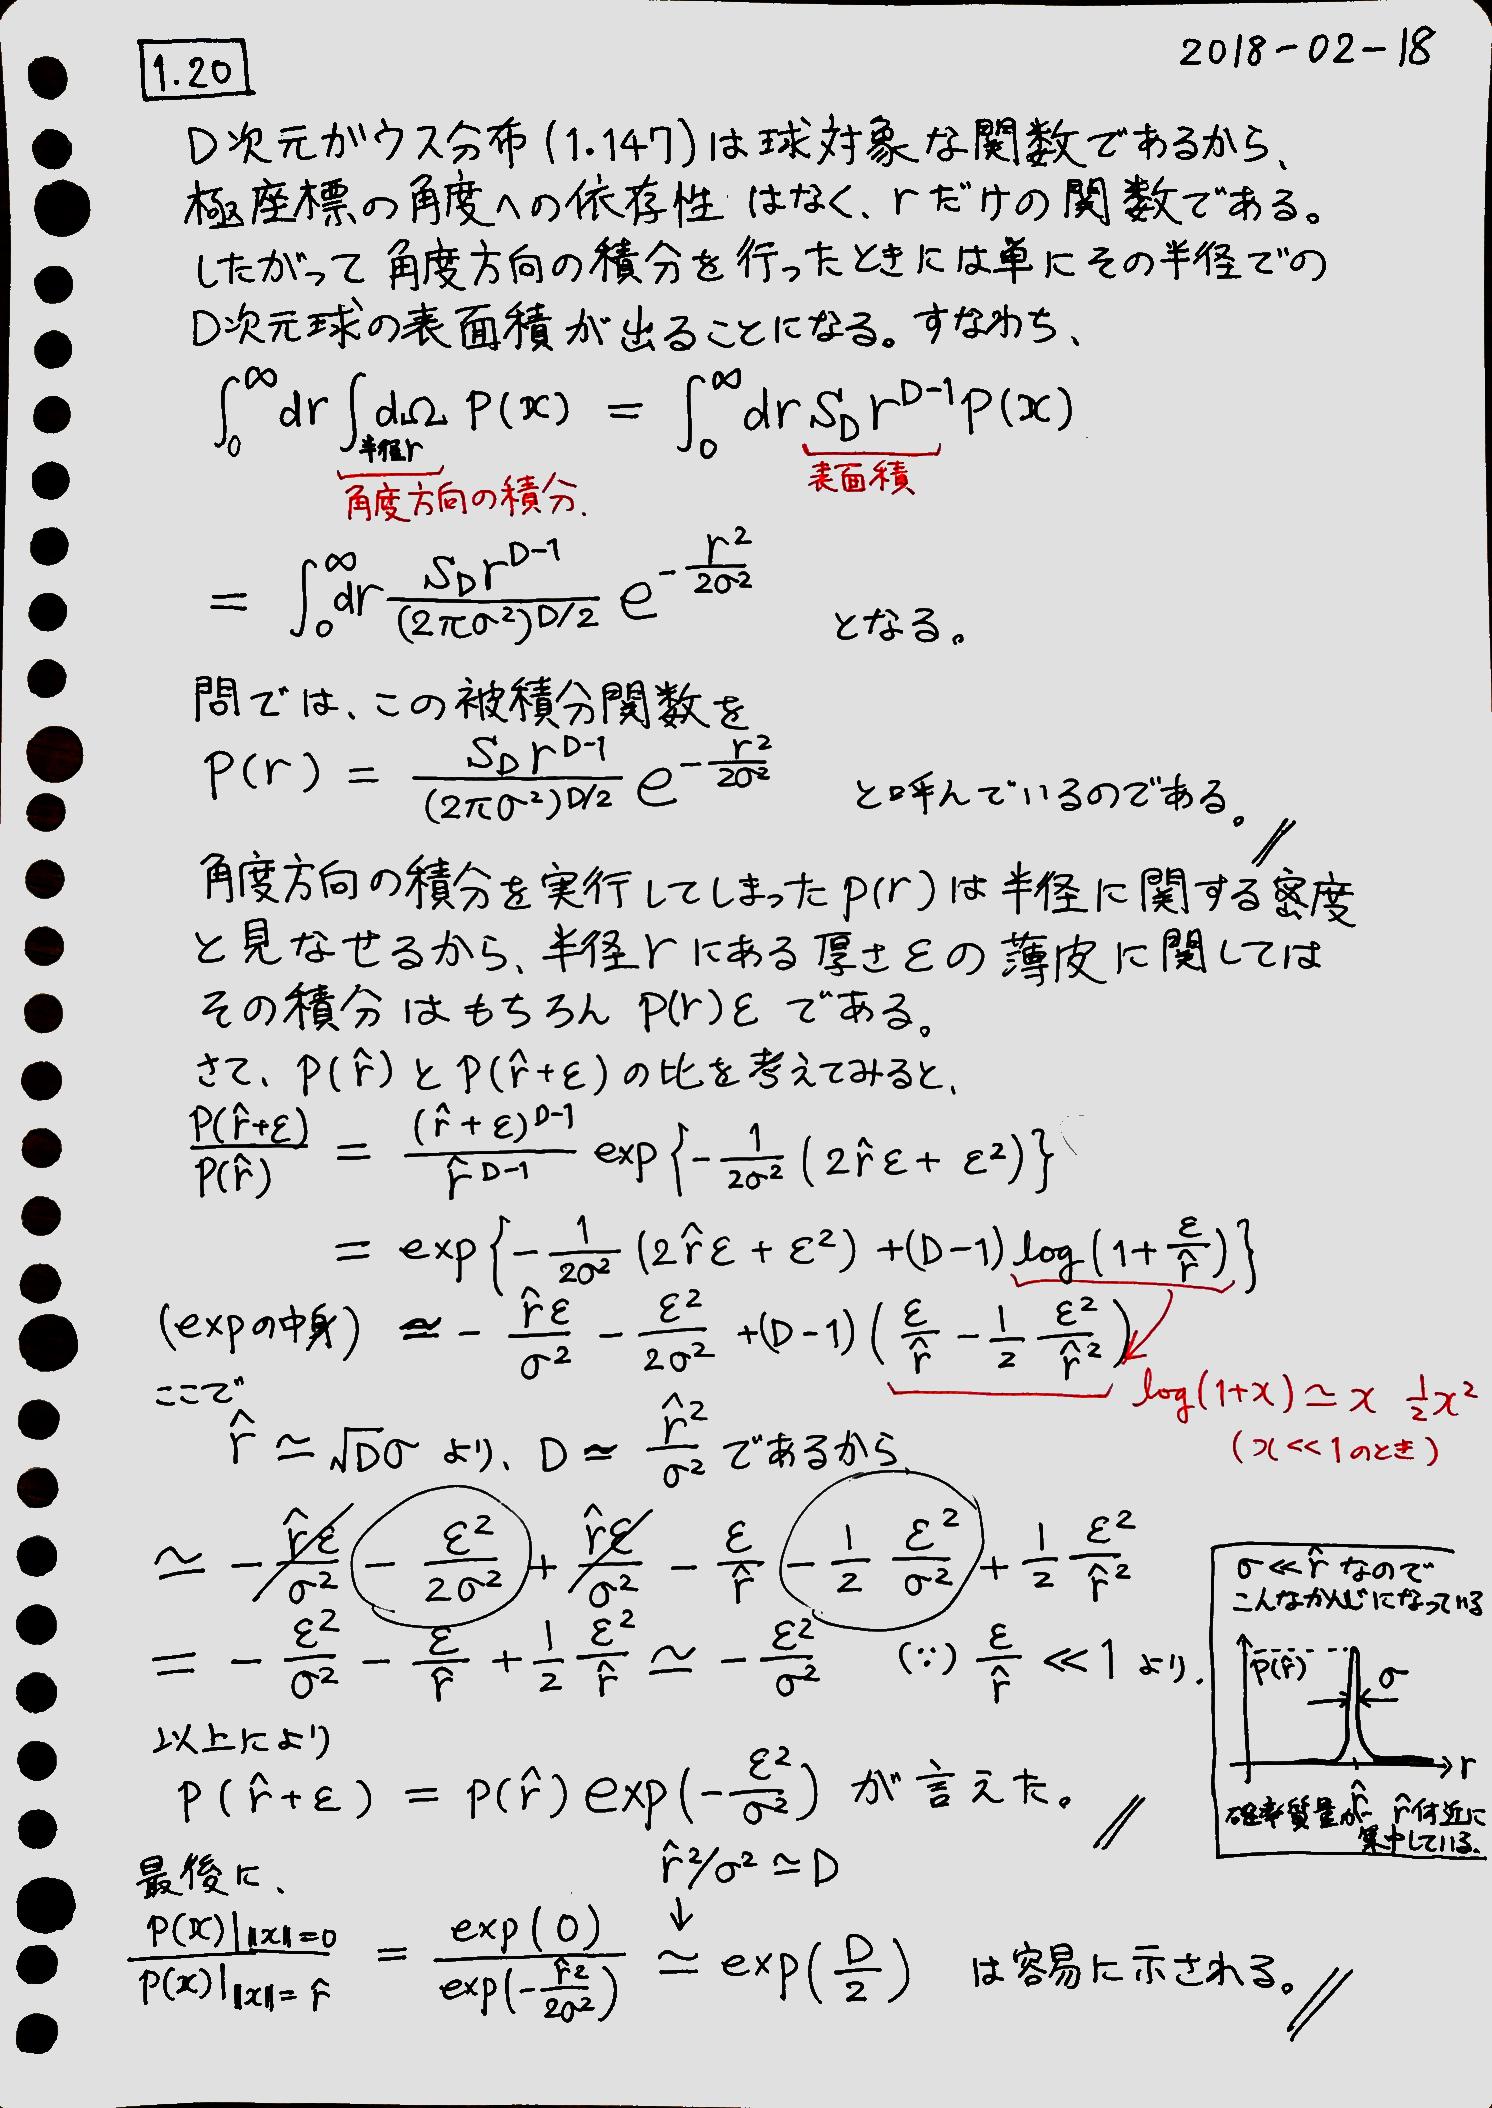 1.20
2018-02-18
D次元がウス分布(1.147)は球対象な関数であるから、
極座標の角度への依存性はなく、rだけの関数である。
したがって角度方向の積分を行ったときには単にその半径での
D次元球の表面積が出ることになる。すなわち、
∫₀^∞ dr ∫_{半径r} dΩ p(x) = ∫₀^∞ dr S_D r^{D-1} p(x)
角度方向の積分.
表面積
= ∫₀^∞ dr \frac{S_D r^{D-1}}{(2πσ²)^{D/2}} e^{-\frac{r²}{2σ²}} となる。
問では、この被積分関数を
p(r) = \frac{S_D r^{D-1}}{(2πσ²)^{D/2}} e^{-\frac{r²}{2σ²}} と呼んでいるのである。//
角度方向の積分を実行してしまったp(r)は半径に関する密度
と見なせるから、半径rにある厚さεの薄皮に関しては
その積分はもちろん p(r)ε である。
さて、p(r̂)とp(r̂+ε)の比を考えてみると、
\frac{p(r̂+ε)}{p(r̂)} = \frac{(r̂+ε)^{D-1}}{r̂^{D-1}} exp{-\frac{1}{2σ²}(2r̂ε+ε²)}
= exp{-\frac{1}{2σ²}(2r̂ε+ε²)+(D-1)log(1+\frac{ε}{r̂})}
(expの中身) ≃ -\frac{r̂ε}{σ²} - \frac{ε²}{2σ²} +(D-1)(\frac{ε}{r̂} - \frac{1}{2}\frac{ε²}{r̂²})
log(1+x)≃x ½x²
(x<<1のとき)
ここで
r̂ ≃ √Dσ より、D ≃ \frac{r̂²}{σ²} であるから
≃ -\frac{r̂ε}{σ²} - \frac{ε²}{2σ²} + \frac{r̂ε}{σ²} - \frac{ε}{r̂} - \frac{1}{2}\frac{ε²}{σ²} + \frac{1}{2}\frac{ε²}{r̂²}
= -\frac{ε²}{σ²} - \frac{ε}{r̂} + \frac{1}{2}\frac{ε²}{r̂} ≃ -\frac{ε²}{σ²} (∵) \frac{ε}{r̂} ≪ 1 より.
以上により
p(r̂+ε) = p(r̂) exp(-\frac{ε²}{σ²}) が言えた。//
σ≪r̂ なので
こんなかんじになっている
p(r̂)
σ
r
r̂
確率質量が r̂付近に
集中している.
最後に、
r̂²/σ²≃D
↓
\frac{p(x)|_{‖x‖=0}}{p(x)|_{‖x‖=r̂}} = \frac{exp(0)}{exp(-\frac{r̂²}{2σ²})} ≃ exp(\frac{D}{2}) は容易に示される。//